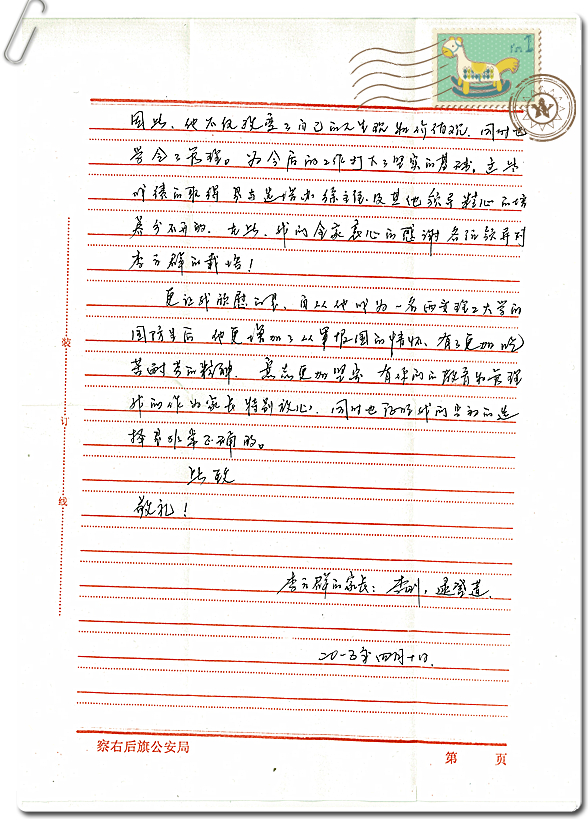 因此,他不仅改变了自己的人生观和价值观,同时也
学会了管理。为今后的工作打下了坚实的基础,这些
成绩的取得是与选培办徐主任及其他领导精心的培
养分不开的,在此,我们全家衷心的感谢各位领导对
李方群的栽培!
更让我欣慰的是,自从他成为一名西安理工大学的
国防生后,他更增加了从军报国的情怀,有了更加吃
苦耐劳的精神,意志更加坚实,有你们的教育和管理
我们作为家长特别放心,同时也证明我们当初的选
择是非常正确的。
此致
敬礼!
李方群的家长:李刚,
二0一三年四月十日.
装
订
线
察右后旗公安局
第 页
1